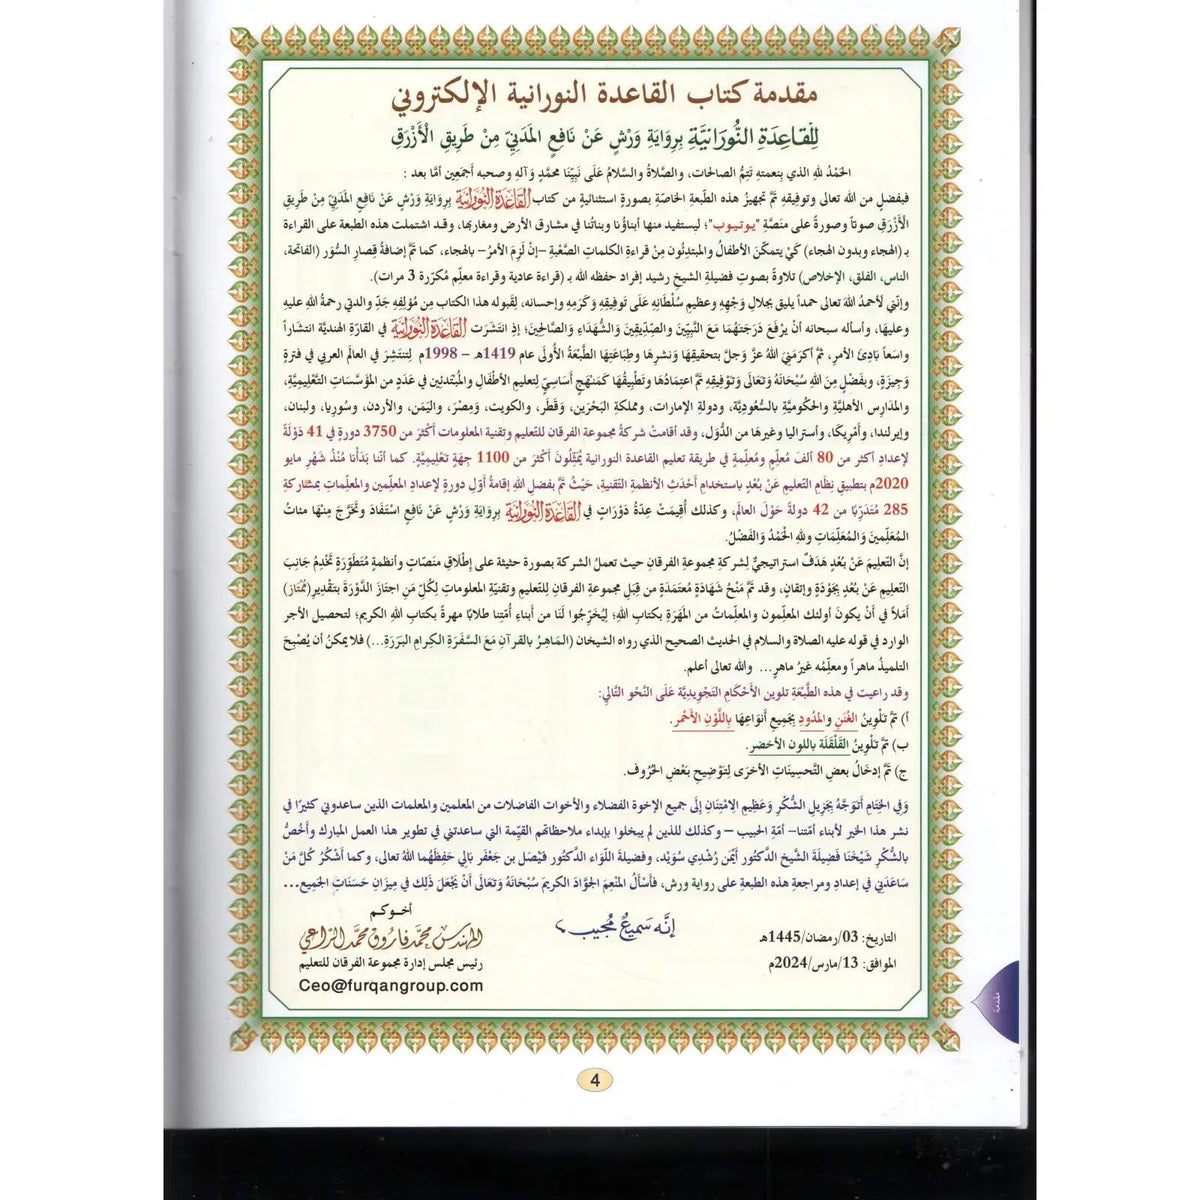 مقدمة كتاب القاعدة النورانية الإلكتروني
لِلْقَاعِدَةِ النُّورَانِيَّةِ بِرِوَايَةِ وَرْشٍ عَنْ نَافِعٍ المَدَنِيّ مِنْ طَرِيقِ الْأَزْرَقِ
الحَمْدُ للهِ الذي بِنعمتهِ تَتِمُّ الصالحات، والصَّلاةُ والسَّلامُ عَلَى نَبِيِّنَا محمَّدٍ وَآلِهِ وصحبه أَجمَعِين أمَّا بعد :
فبفضلٍ من الله تعالى وتوفيقِهِ تَمَّ تجهيزُ هذه الطَّبعةِ الخاصّةِ بصورةٍ استثنائيةٍ من كتاب القَاعِدَة النُّورَانِيَّة بِرِوَايَةِ وَرْشٍ عَنْ نَافِعٍ المَدَنِيّ مِنْ طَرِيقِ
الْأَزْرَقِ صوتاً وصورةً على منصَّةِ "يوتيوب"؛ ليستفيد منها أبناؤُنا وبناتُنا في مشارق الأرض ومغاربِها، وقد اشتملت هذه الطبعة على القراءة
بـ (الهجاء وبدون الهجاء) كَيْ يتمكّنَ الأطفالُ والمبتدِئون مِنْ قراءةِ الكلماتِ الصَّعْبةِ –إنْ لَزِمَ الأمرُ– بالهجاء، كما تمَّ إضافةُ قِصارِ السُّوَر (الفاتحة،
الناس، الفلق، الإخلاص) تلاوةً بصوتِ فضيلةِ الشيخِ رشيد إفراد حفظه الله بـ (قراءة عادية وقراءة معلِّم مُكرّرة 3 مرات).
وإنّني لأحمدُ اللهَ تعالى حمداً يليق بجلالِ وَجْهِهِ وعظيمِ سُلْطَانِهِ عَلَى تَوفِيقِهِ وَكَرَمِهِ وإحسانه، لقبوله هذا الكتاب مِن مُؤلفِهِ جَدِّ والدتي رحمةُ اللهِ عليهِ
وعليهَا، وأسأله سبحانه أنْ يرْفَعَ دَرَجَتهُمَا مَعَ النَّبِيِّينَ والصِّدِّيقِينَ وَالشُّهَدَاءِ وَالصَّالِحِينَ؛ إذِ انْتَشَرَتِ القَاعِدَة النُّورَانِيَّة في القارّةِ الهنديَّة انْتشاراً
واسَعاً بَادِئَ الأمرِ، ثمَّ أكرَمَنِيَ اللهُ عزَّ وَجلَّ بتحقيقِهَا وَنشرِهَا وطِبَاعَتِهَا الطَّبْعَةُ الأُولَى عام 1419هـ – 1998م لِتنتَشِرَ في العالمِ العربي في فترةٍ
وَجِيزَةٍ، وبفَضْلٍ مِنَ اللهِ سُبْحَانَهُ وَتَعَالَى وَتَوْفِيقِهِ تَمَّ اعتِمَادُهَا وَتَطْبِيقُهَا كَمَنْهَجٍ أَسَاسِيٍّ لِتعليمِ الأطْفَالِ والمُبْتدئين في عَدَدٍ من المؤَسَّسَاتِ التَّعْلِيمِيَّةِ،
والمدَارِسِ الأهليَّةِ والحكُوميَّةِ بالسُّعُوديَّةِ، ودولةِ الإمارات، ومملكةِ البَحْرَين، وَقَطَر، والكويت، وَمِصْرَ، واليَمَن، والأردن، وسُوريا، ولبنان،
وإيرلندا، وأَمْرِيكَا، وأستراليا وغيرِهَا من الدُّوَل، وقد أقامتْ شركةُ مجموعة الفرقان للتعليم وتقنية المعلومات أكْثَرَ من 3750 دورةٍ في 41 دَوْلَةً
لإعدادِ أكثرَ من 80 ألفَ معُلِّمٍ ومُعلِّمةٍ في طريقة تعليم القاعدة النورانية يُمَثِّلُونَ أَكْثَرَ من 1100 جِهةٍ تَعْلِيمِيَّةٍ. كما أنّنا بَدَأْنا مُنْذُ شَهْرِ مايو
2020م بتطبيق نِظَامِ التَّعليم عَنْ بُعْدٍ باستخدامِ أَحْدَثِ الأنظمةِ التقنيةِ، حَيْثُ تمَّ بفضلِ اللهِ إقامةُ أوّلِ دورةٍ لإعدادِ المعلِّمين والمعلِّماتِ بمشاركةِ
285 مُتَدَرِّبًا من 42 دولةً حَوْلَ العالمِ، وكذلك أُقِيمَتْ عِدَّةُ دَوْرَاتٍ في القَاعِدَة النُّورَانِيَّة بِرِوَايَةِ وَرْشٍ عَنْ نَافِعٍ اسْتَفَادَ وتخَرَّجَ مِنْهَا مئاتُ
المُعَلِّمِينَ وَالمُعَلِّمَاتِ وللهِ الحَمْدُ وَالفَضْلُ.
إنَّ التعليمَ عَنْ بُعْدٍ هَدَفٌ استراتيجيٌّ لِشركةِ مجموعةِ الفرقانِ حيث تعملُ الشركة بصورة حثيثة على إِطْلَاقِ منصّاتٍ وأنظمةٍ مُتَطَوِّرَةٍ تخْدُمُ جَانِبَ
التعليمِ عَنْ بُعْدٍ بِجَوْدَةٍ وإتقانٍ، وقد تمَّ مَنْحُ شَهَادَةٍ مُعتَمَدَةٍ من قِبَلِ مجموعة الفرقانِ لِلتّعليمِ وتقنيةِ المعلوماتِ لِكُلِّ مَنِ اجتازَ الدَّوْرَةَ بتقْدِيرِ(مُمْتَاز)
أَمَلاً في أنْ يكونَ أولئك المعلِّمون والمعلِّماتُ من المَهَرَةِ بكتابِ اللهِ؛ لِيُخَرِّجُوا لَنَا من أبناءِ أُمّتِنا طلابًا مهرةً بكتابِ اللهِ الكريمِ؛ لتحصيل الأجر
الوارد في قوله عليه الصلاة والسلام في الحديث الصحيح الذي رواه الشيخان (المَاهِرُ بالقرآنِ مَعَ السَّفَرَةِ الكِرامِ البَرَرَةِ...) فلا يمكنُ أن يُصْبِحَ
التلميذُ ماهراً ومعلِّمُه غيرُ ماهرٍ... والله تعالى أعلم.
وقد راعيت في هذه الطَّبْعَةِ تلوين الأَحْكَامِ التَّجْوِيدِيَّةِ عَلَى النَّحْوِ التَّالِي:
أ) تمَّ تَلْوِينُ الغُنَنِ والمدُودِ بِجَمِيعِ أنوَاعِهَا بِاللَّوْنِ الأَحْمَر.
ب) تمَّ تَلْوِينُ القَلْقَلَة باللون الأخضر.
ج) تَمَّ إدخَالُ بعضِ التَّحسِينَاتِ الأخرَى لِتَوْضِيحِ بَعْضِ الحُرُوف.
وَفِي الخِتَامِ أَتوَجَّهُ بجَزِيلِ الشُّكْرِ وعَظِيمِ الِامْتِنَانِ إِلَى جميعِ الإخوة الفضلاء والأخوات الفاضلات من المعلمين والمعلمات الذين ساعدوني كثيرًا في
نشر هذا الخَيرِ لأبناء أمّتنا– أمّةِ الحبيب – وكذلك للذين لم يبخلوا بإبداء ملاحظاتهم القيّمة التي ساعدتني في تطوير هذا العمل المبارك وأخُصُّ
بالشُّكْرِ شَيْخَنَا فَضِيلَةَ الشَّيخ الدَّكتُور أيْمَن رُشْدِي سُوَيْد، وفضيلةَ اللِّوَاء الدَّكتُور فَيْصَل بن جَعْفَر بَالِي حَفِظَهُما اللهُ تعالى، وكما أَشْكُرُ كُلَّ مَنْ
سَاعَدَنِي في إعدادِ ومراجعةِ هذه الطبعةِ على رواية ورش، فأَسْأَلُ المُنْعِمَ الجَوَّادَ الكريمَ سُبْحَانَهُ وَتَعَالَى أَنْ يَجْعَلَ ذَلِكَ في مِيزَانِ حَسَنَاتِ الجَمِيع...
إنَّه سَمِيعٌ مُجِيب
أخوكم
المهندس محمد فاروق محمد الراعي
رئيس مجلس إدارة مجموعة الفرقان للتعليم
Ceo@furqangroup.com
التاريخ: 03/رمضان/1445هـ
الموافق: 13/مارس/2024م
مقدمة
4